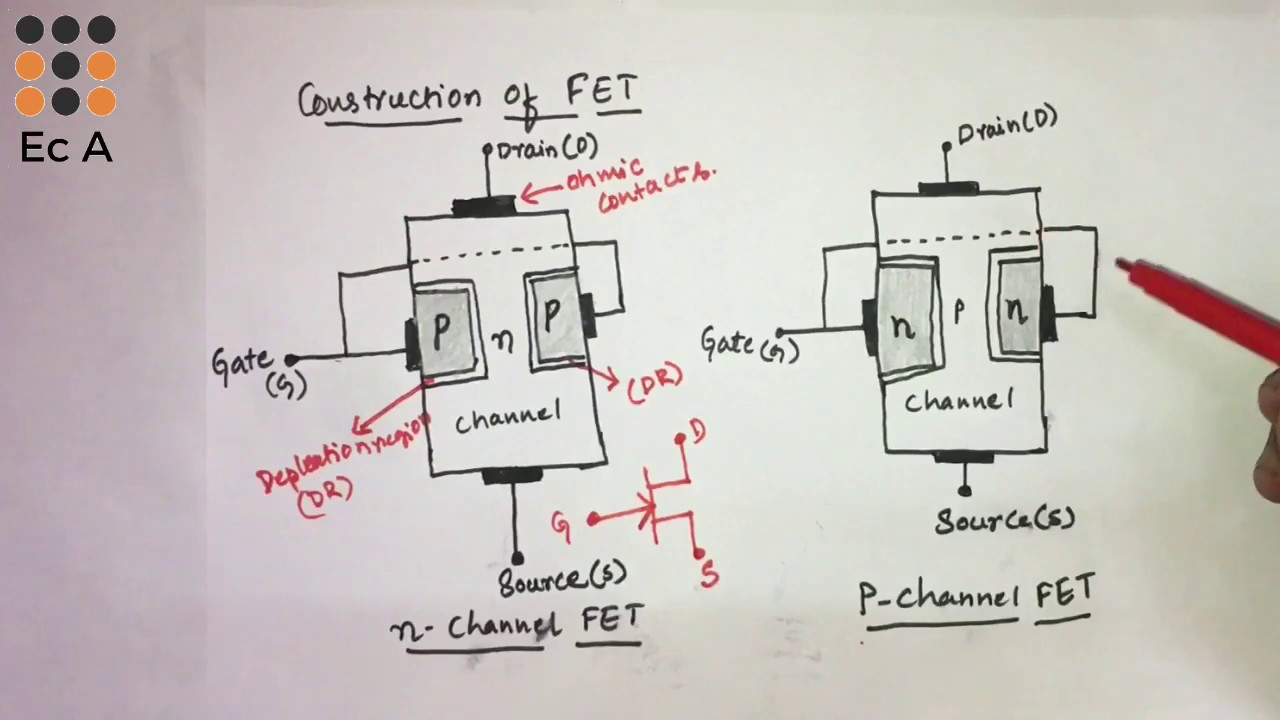 Ec A
Construction of FET
Drain(D)
ohmic
contacts.
P
n
P
Gate
(G)
channel
(DR)
Depleationregion
(DR)
D
G
S
Source(s)
n-channel FET
Drain(D)
n
P
n
Gate(G)
channel
Source(s)
P-channel FET